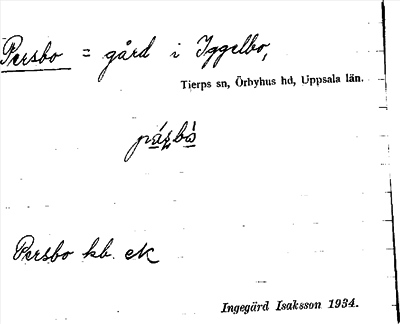 Persbo = gård i Iggelbo,
Tierps sn, Örbyhus hd, Uppsala län.
Persbo kb. ek
Ingegärd Isaksson 1934.